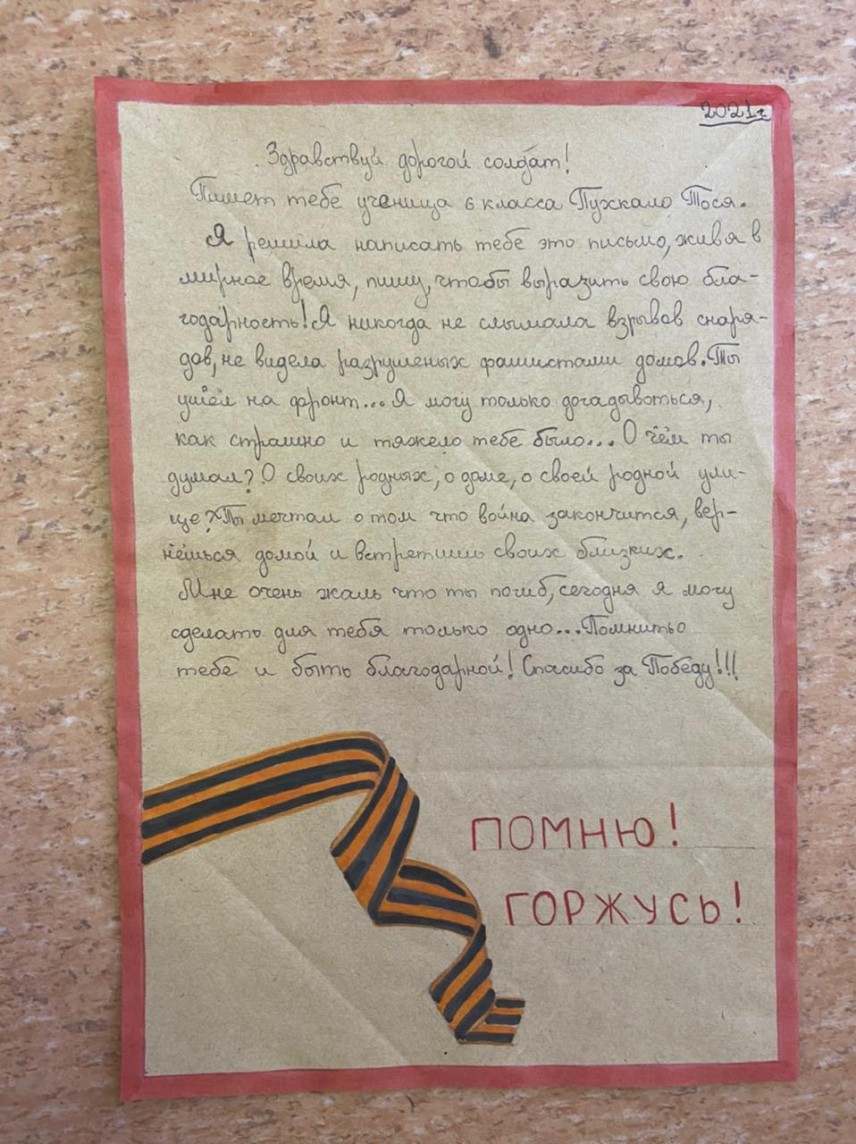 2021г
Здравствуй дорогой солдат!
Пишет тебе ученица 6 класса Пужкало Тося.
Я решила написать тебе это письмо, живя в
мирное время, пишу, чтобы выразить свою бла-
годарность! Я никогда не слышала взрывов снаря-
дов, не видела разрушеных фашистами домов. Ты
ушёл на фронт... Я могу только догадываться,
как страшно и тяжело тебе было... О чём ты
думал? О своих родных, о доме, о своей родной ули-
це? Ты мечтал о том что война закончится, вер-
нёшься домой и встретишь своих близких.
Мне очень жаль что ты погиб, сегодня я могу
сделать для тебя только одно... Помнить о
тебе и быть благодарной! Спасибо за Победу!!!
ПОМНЮ!
ГОРЖУСЬ!